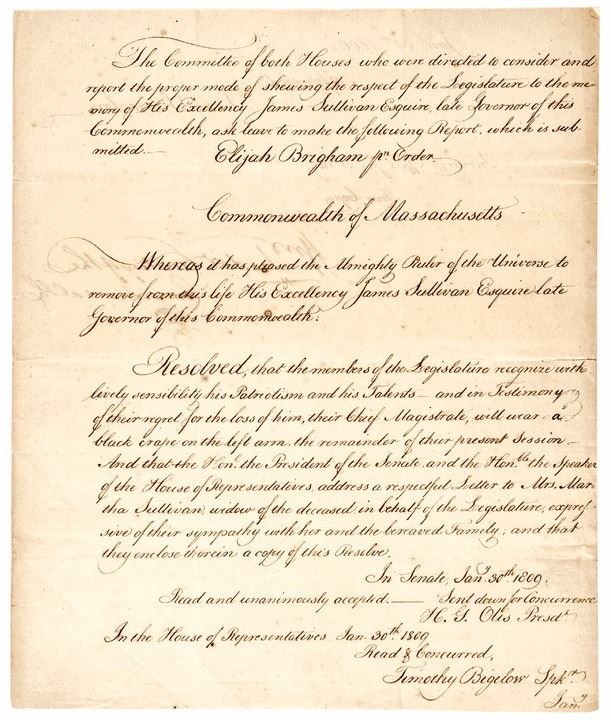 The Committee of both Houses who were directed to consider and
report the proper mode of shewing the respect of the Legislature to the me-
mory of His Excellency James Sullivan Esquire, late Governor of this
Commonwealth, ask leave to make the following Report, which is sub-
mitted.—
Elijah Brigham pr. Order.
Commonwealth of Massachusetts
Whereas it has pleased the Almighty Ruler of the Universe to
remove from this life His Excellency James Sullivan Esquire late
Governor of this Commonwealth:
Resolved, that the members of the Legislature recognize with
lively sensibility his Patriotism and his Talents — and in Testimony
of their regret for the loss of him, their Chief Magistrate, will wear a
black crape on the left arm the remainder of their present Session —
And that the Hon. the President of the Senate, and the Hon.ble the Speaker
of the House of Representatives, address a respectful Letter to Mrs. Mar-
tha Sullivan, widow of the deceased in behalf of the Legislature, expres-
sive of their sympathy with her and the bereaved Family; and that
they enclose therein a copy of this Resolve.
In Senate, Jan.y 30th. 1809.
Read and unanimously accepted. — Sent down for Concurrence
H. G. Otis Presdt.
In the House of Representatives Jan. 30th. 1809
Read & Concurred,
Timothy Bigelow Spkr.
Jan.y